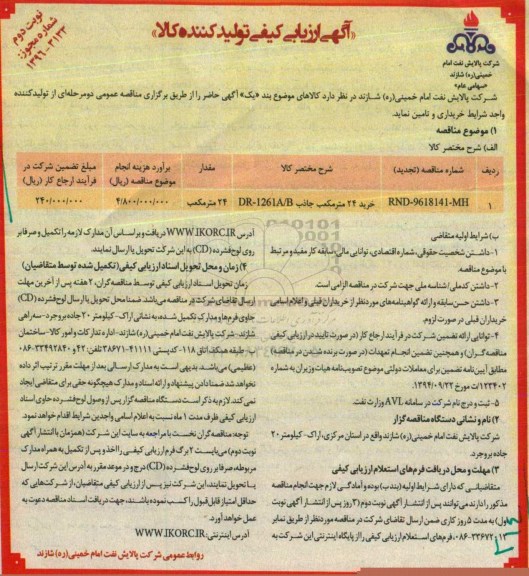 نوبت دوم
شماره مجوز:
۱۳۹۶-۳۱۳۳
«آگهی ارزیابی کیفی تولیدکننده کالا»
شرکت پالایش نفت امام
خمینی(ره) شازند
«سهامی عام»
شرکت پالایش نفت امام خمینی(ره) شازند در نظر دارد کالاهای موضوع بند «یک» آگهی حاضر را از طریق برگزاری مناقصه عمومی دومرحله‌ای از تولیدکننده
واجد شرایط خریداری و تامین نماید.
۱) موضوع مناقصه
الف) شرح مختصر کالا
ردیف شماره مناقصه (تجدید) شرح مختصر کالا مقدار برآورد هزینه انجام موضوع مناقصه (ریال) مبلغ تضمین شرکت در فرآیند ارجاع کار (ریال)
۱ RND-9618141-MH خرید ۲۴ مترمکعب جاذب DR-1261A/B ۲۴ مترمکعب ۴/۸۰۰/۰۰۰/۰۰۰ ۲۴۰/۰۰۰/۰۰۰
ب) شرایط اولیه متقاضی
۱- داشتن شخصیت حقوقی، شماره اقتصادی، توانایی مالی، سابقه کار مفید و مرتبط
با موضوع مناقصه.
۲- داشتن کدملی/شناسه ملی جهت شرکت در مناقصه الزامی است.
۳- داشتن حسن سابقه و ارائه گواهینامه‌های موردنظر از خریداران قبلی و اعلام اسامی
خریداران قبلی در صورت لزوم.
۴- توانایی ارائه تضمین شرکت در فرآیند ارجاع کار (در صورت تایید در ارزیابی کیفی
مناقصه‌گران) و همچنین تضمین انجام تعهدات (در صورت برنده شدن در مناقصه)
مطابق آیین‌نامه تضمین برای معاملات دولتی موضوع تصویب‌نامه هیات وزیران به شماره
۱۲۳۴۰۲/ت مورخ ۱۳۹۴/۰۹/۲۲.
۵- ثبت و درج نام شرکت در سامانه AVL وزارت نفت.
۲) نام و نشانی دستگاه مناقصه‌گزار
شرکت پالایش نفت امام خمینی(ره) شازند واقع در استان مرکزی، اراک- کیلومتر ۲۰
جاده بروجرد.
۳) مهلت و محل دریافت فرم‌های استعلام ارزیابی کیفی
متقاضیانی که دارای شرایط اولیه (بند ب) بوده و آمادگی لازم جهت انجام مناقصه
مذکور را دارند می‌توانند پس از انتشار آگهی نوبت دوم (۳ روز پس از انتشار آگهی نوبت
اول) به مدت ۵ روز کاری ضمن ارسال تقاضای شرکت در مناقصه موردنظر از طریق نمابر
۰۸۶-۳۳۶۷۲، فرم‌های استعلام ارزیابی کیفی را از پایگاه اینترنتی این شرکت به
آدرس WWW.IKORC.IR دریافت و براساس آن مدارک لازمه را تکمیل و صرفا بر
روی لوح فشرده (CD) به این شرکت تحویل یا ارسال نمایند.
۴) زمان و محل تحویل اسناد ارزیابی کیفی (تکمیل شده توسط متقاضیان)
زمان تحویل اسناد ارزیابی کیفی توسط مناقصه‌گران، ۲ هفته پس از آخرین مهلت
ارسال تقاضای شرکت در مناقصه می‌باشد ضمنا محل تحویل یا ارسال لوح فشرده (CD)
حاوی فرم‌ها و مدارک تکمیل شده، به نشانی اراک- کیلومتر ۲۰ جاده بروجرد- سه‌راهی
شازند- شرکت پالایش نفت امام خمینی(ره) شازند- اداره تدارکات و امور کالا- ساختمان
ب- طبقه همکف اتاق ۱۱۸- کدپستی ۴۱۱۱۱-۳۸۶۷۱ تلفن: ۴۲ و ۳۳۴۹۲۸۴۰-۰۸۶
(عظیمی) می‌باشد. بدیهی است به مدارک ارسالی بعد از مهلت مقرر ترتیب اثر داده
نخواهد شد ضمنا دادن پیشنهاد و ارائه اسناد و مدارک هیچگونه حقی برای متقاضی ایجاد
نمی‌کند. لازم به ذکر است دستگاه مناقصه‌گزار پس از وصول لوح فشرده حاوی اسناد
ارزیابی کیفی ظرف مدت ۱ ماه نسبت به اعلام اسامی واجدین شرایط اقدام خواهد نمود.
توجه: مناقصه‌گران نخست با مراجعه به سایت این شرکت (همزمان با انتشار آگهی
نوبت دوم)، می‌بایست ۲ برگ فرم ارزیابی کیفی را اخذ و پس از تکمیل به همراه مدارک
مربوطه، صرفا بر روی لوح فشرده (CD) درج و در موعد مقرر به آدرس این شرکت ارسال
یا تحویل نمایند. این شرکت نیز پس از ارزیابی کیفی متقاضیان، از شرکت‌هایی که
حداقل امتیاز قابل قبول را کسب نموده باشند، جهت دریافت اسناد مناقصه دعوت به
عمل خواهد آورد.
آدرس اینترنتی: WWW.IKORC.IR
روابط عمومی شرکت پالایش نفت امام خمینی(ره) شازند